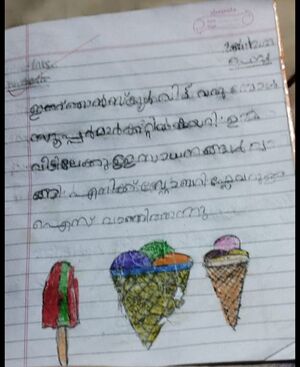 ഇന്ന് ഞാൻ സ്കൂൾ വിട്ട് വരുമ്പോൾ
സൂപ്പർമാർക്കറ്റിൽ കയറി. ഉമ്മ
വീട്ടിലേക്കുള്ള സാധനങ്ങൾ വാ
ങ്ങി. എനിക്ക് സ്ട്രോബറി ഫ്ലേവറുള്ള
ഐസ് വാങ്ങിത്തന്നു